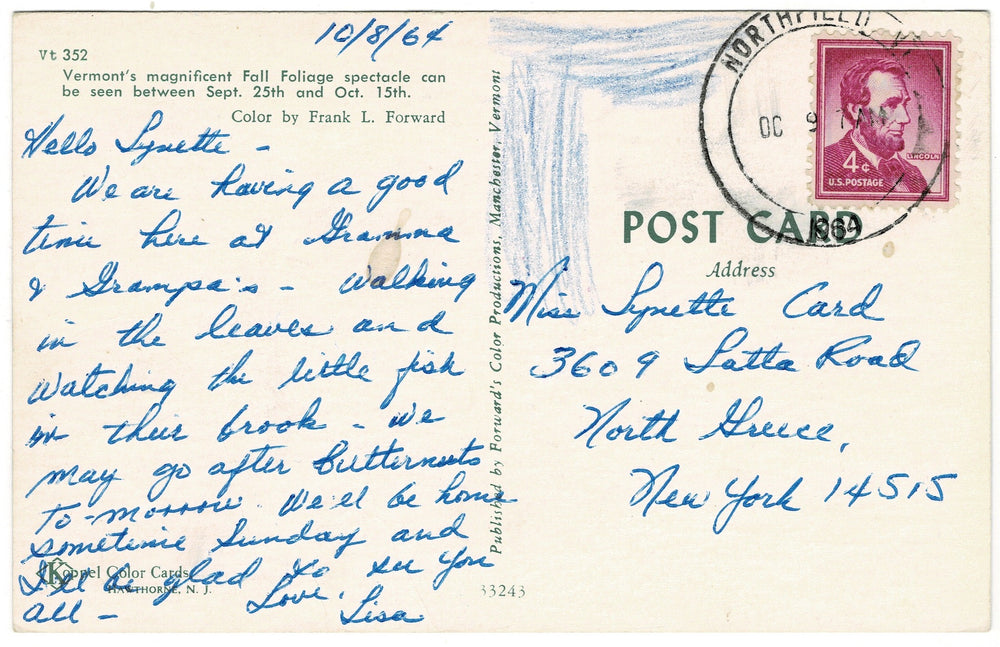 10/8/64
Vt 352
Vermont's magnificent Fall Foliage spectacle can
be seen between Sept. 25th and Oct. 15th.
Color by Frank L. Forward
Hello Lynette -
We are having a good
time here at Gramma
& Grampa's - Walking
in the leaves and
watching the little fish
in their brook - We
may go after butternuts
to-morrow. We'll be home
sometime Sunday and
I'll be glad to see you
all -
Love,
Lisa
Koppel Color Cards
HAWTHORNE, N. J.
Published by Forward's Color Productions, Manchester, Vermont
33243
NORTHFIELD
OC 9 AM
1964
4¢
LINCOLN
U.S. POSTAGE
POST CARD
Address
Miss Lynette Card
3609 Latta Road
North Greece,
New York 14515